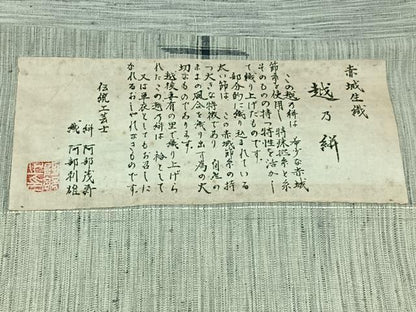 赤城生繊
越乃絣
この越乃絣は、希少な赤城
節糸を使用し、特殊撚糸と糸
そのもの持つ特性を活かし
て織り上げたものです。
部分的に織り込まれている
太い節は、この赤城節糸の持
つ大きな特徴であり、自然の
ままの風合を織り出す為の大
切なものであります。
越後の里で織り上げら
れたこの越乃絣は、袷として
又は単衣としてもお召しに
なれるおしゃれなきものです。
伝統工芸士
絣 阿部茂
織 阿部利雄